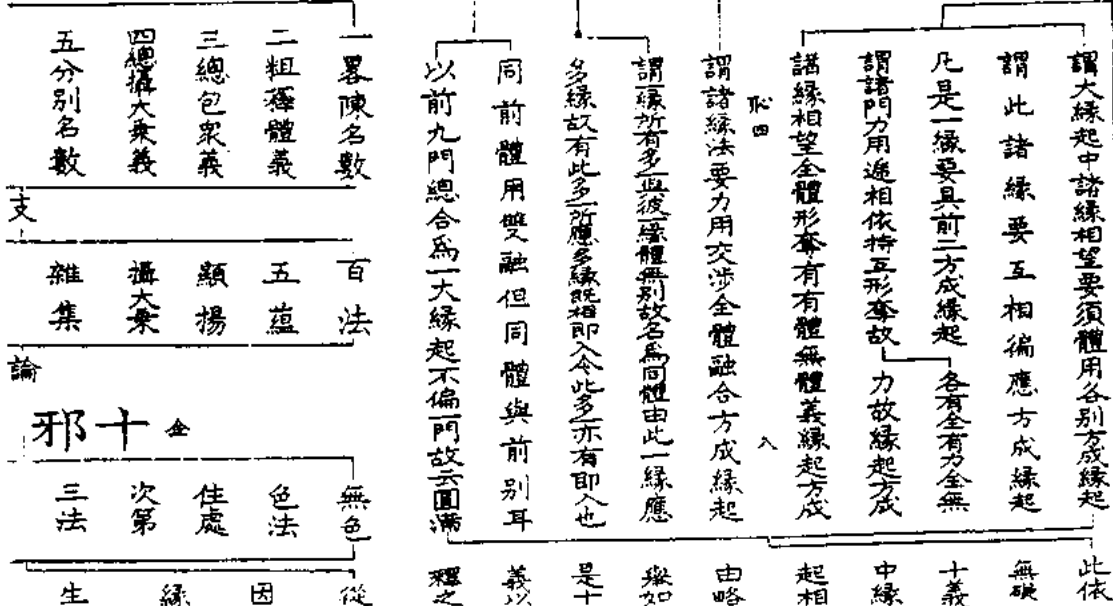 謂大緣起中諸緣相望要須體用各別方成緣起
謂此諸緣要互相徧應方成緣起
凡是一緣要具前二方成緣起
各有全有力全無
謂諸門力用遞相依持互形奪故
力故緣起方成
諸緣相望全體形奪有有體無體義緣起方成
恥四
入
謂諸緣法要力用交涉全體融合方成緣起
謂一緣所有多一與彼一緣體無別故名爲同體由此一緣應
多緣故有此多一所應多緣既相即入令此多一亦有即入也
同前體用雙融但同體與前別耳
以前九門總合爲一大緣起不偏一門故云圓滿
此依
無礙
十義
中緣
起相
由略
如
是十
義以
釋之
一畧陳名數
二粗釋體義
三總包眾義
四總攝大乗義
五分別名數
支
百法
五蘊
顯揚
攝大乗
雜集
論
金
十邪
無色
色法
住處
次第
三法
從
因
緣
生